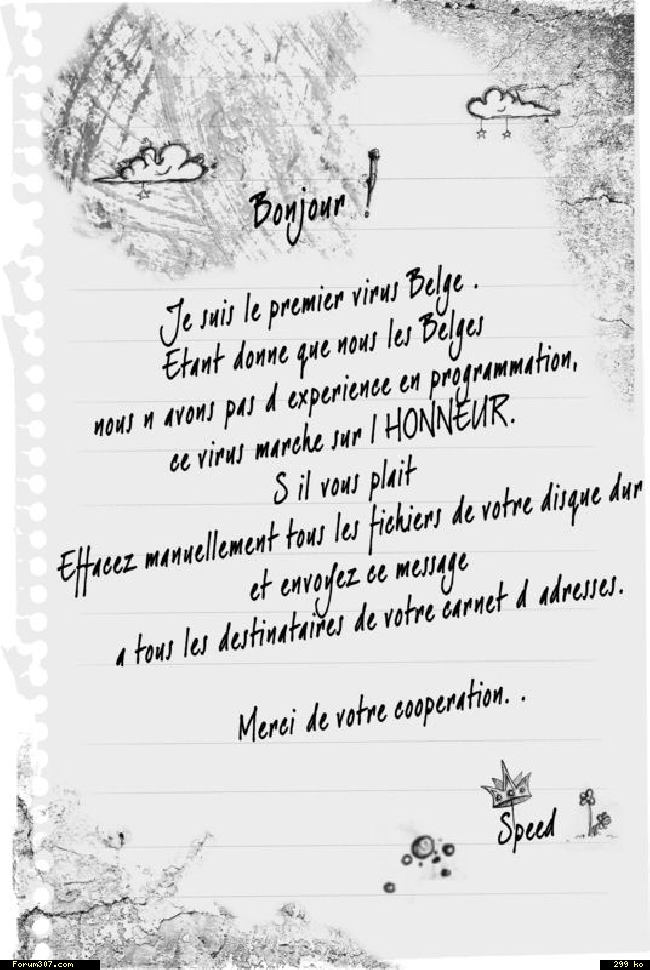 Bonjour !
Je suis le premier virus Belge .
Etant donne que nous les Belges
nous n avons pas d experience en programmation,
ce virus marche sur l HONNEUR.
S il vous plait
Effacez manuellement tous les fichiers de votre disque dur
et envoyez ce message
a tous les destinataires de votre carnet d adresses.
Merci de votre cooperation. .
Speed
Forum307.com
299 ko